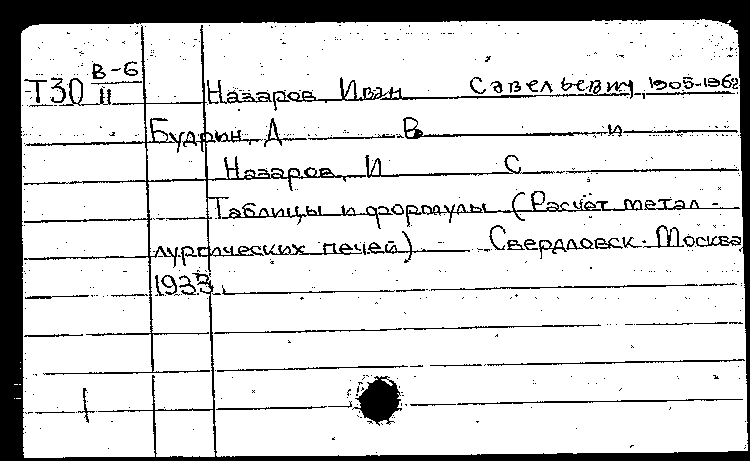 Т30 В-6 Назаров, Иван Савельевич, 1905-1962
II
Будрин, Д В и
Назаров, И С
Таблицы и формулы (Расчёт метал-
лургических печей) Свердловск-Москва
1933.
1